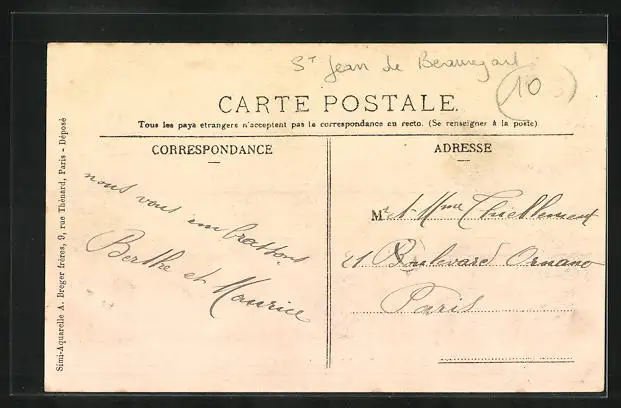 St Jean de Beauregard
10
CARTE POSTALE.
Tous les pays etrangers n'acceptent pas la correspondance au recto. (Se renseigner à la poste)
CORRESPONDANCE
nous vous embrassons
Berthe et Maurice
ADRESSE
M et Mme
21 Boulevard Ornano
Paris
Simi-Aquarelle A. Breger frères, 9, rue Thénard, Paris - Déposé